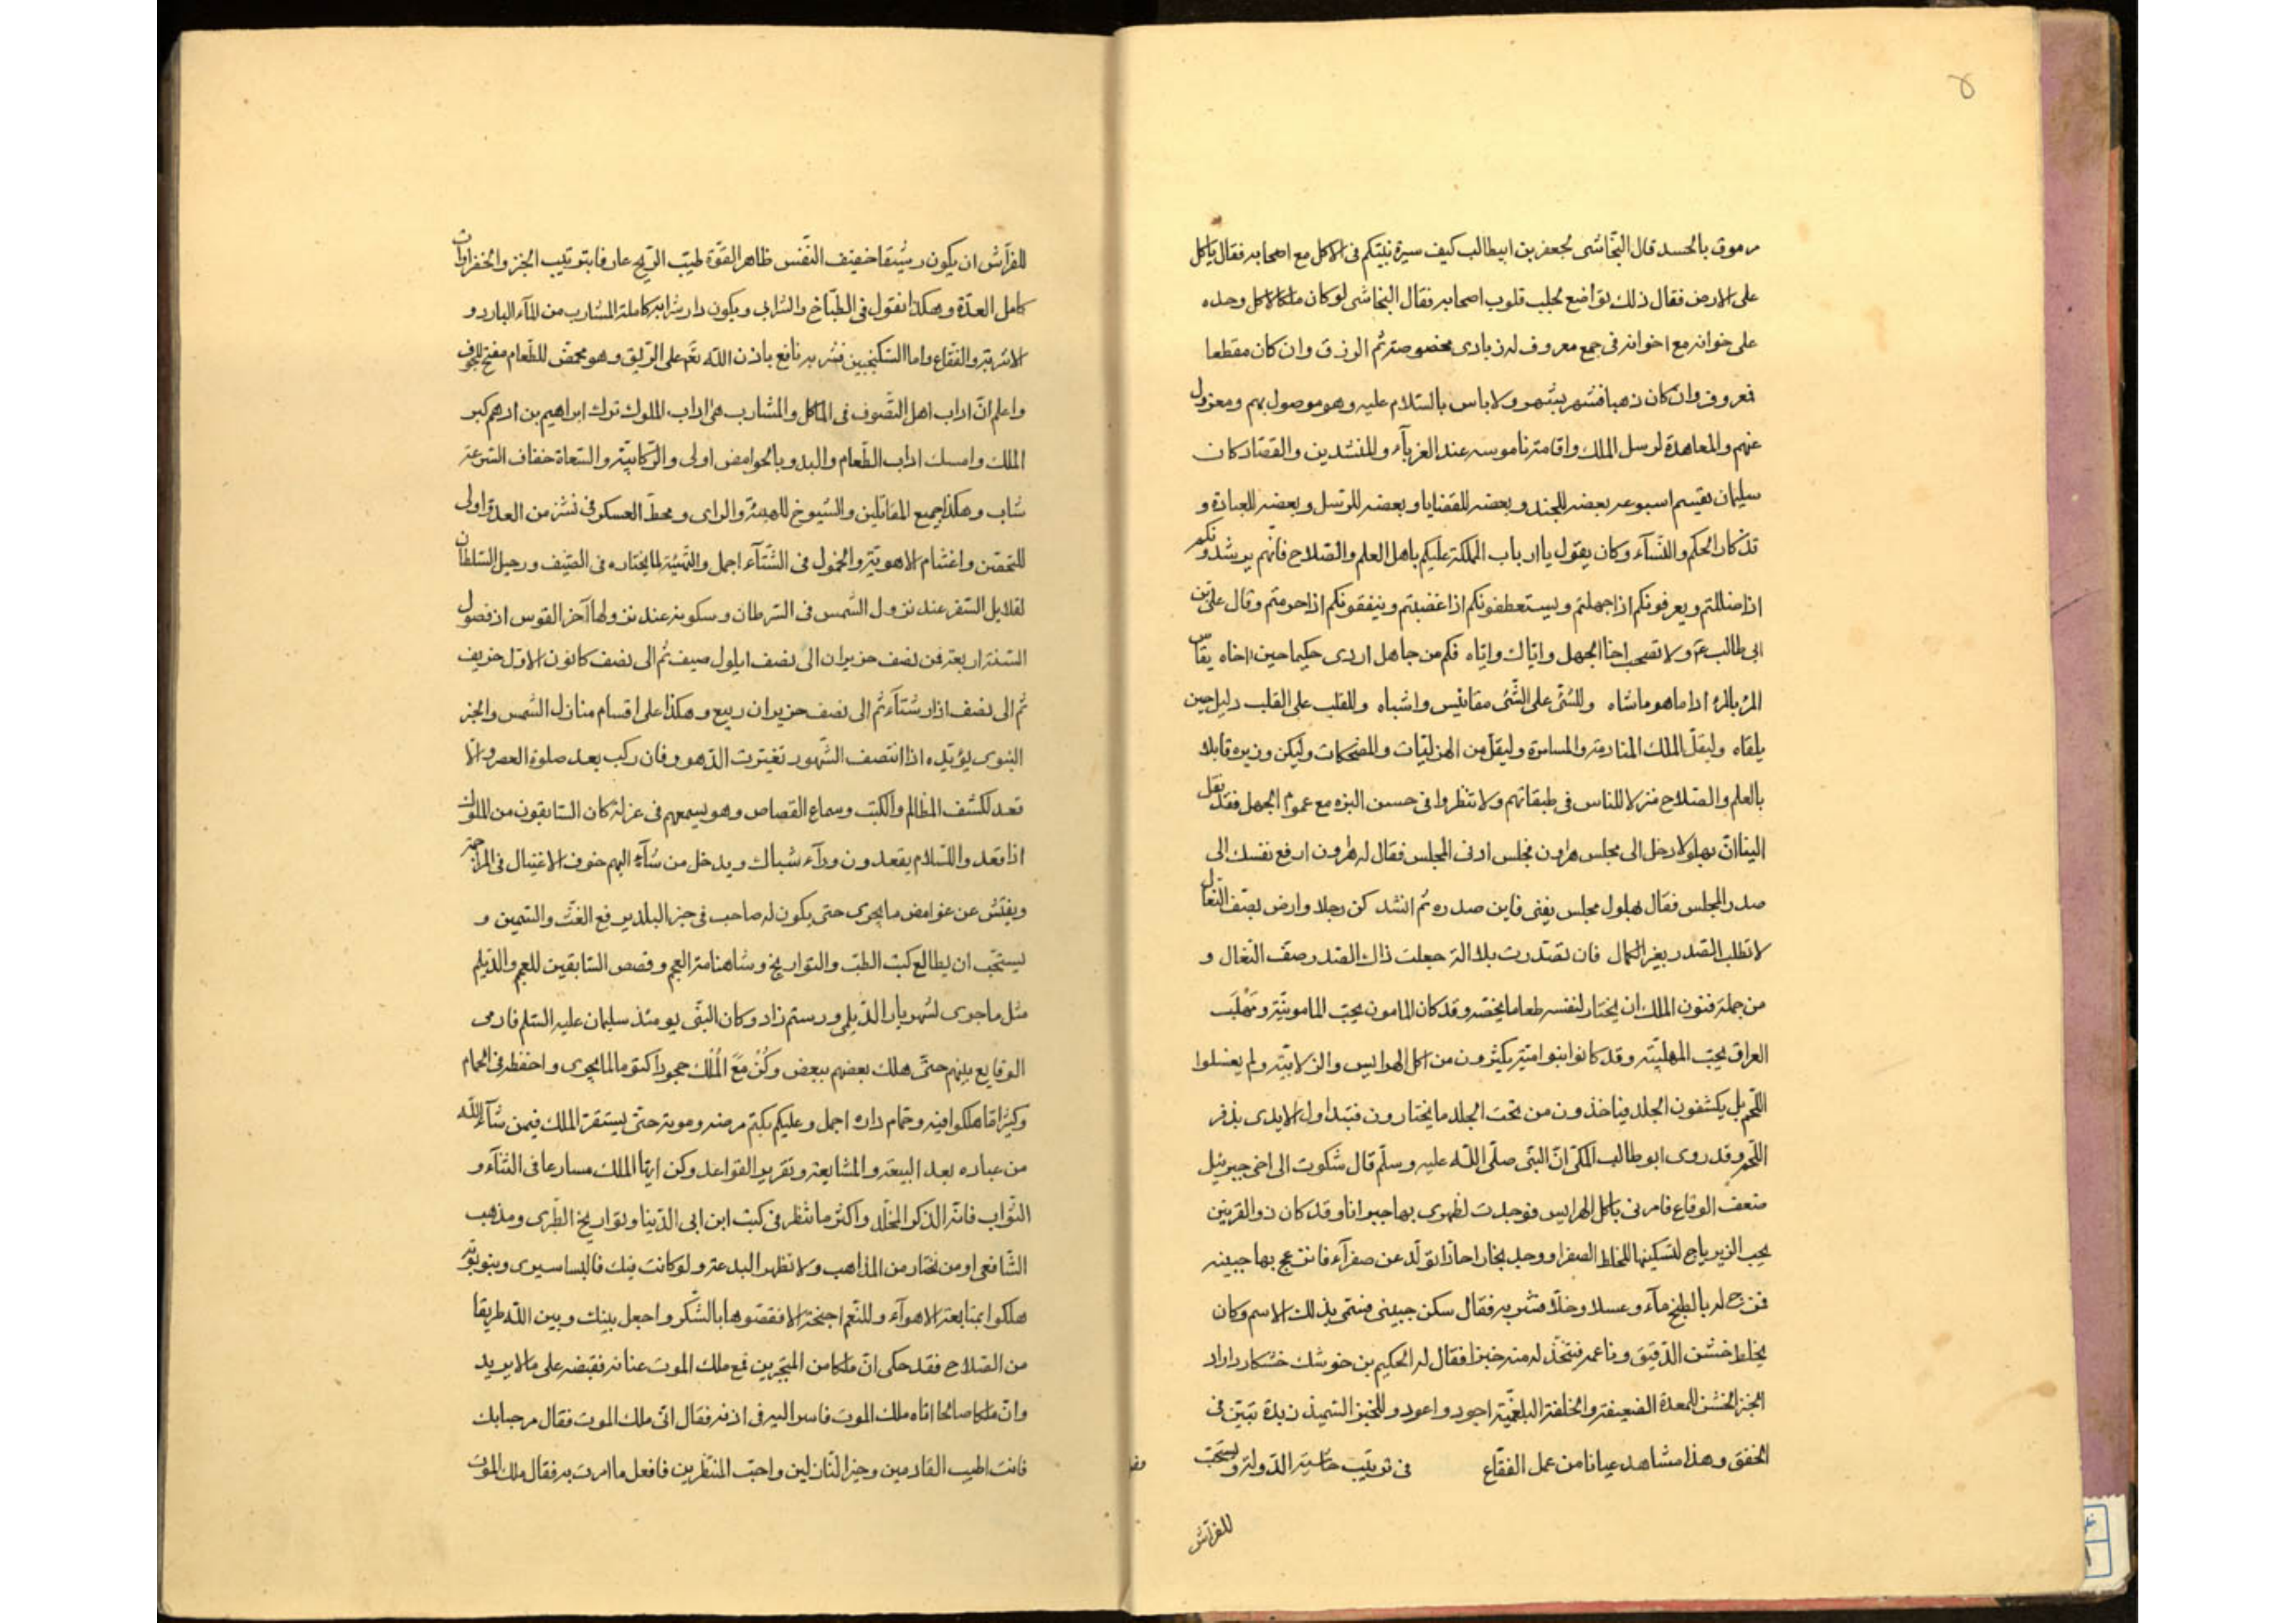 مرموق بالحسد قال النجاشى لجعفر بن ابيطالب كيف سيرة نبيّكم فى الاكل مع اصحابه فقال ياكل
على الارض فقال ذلك تواضع لجلب قلوب اصحابه فقال النجاشى لو كان ملكا لاكل وحده
على خوانه مع اخوانه فى جمع معروف له زبادى مخصوصة ثم الرزق وان كان مقطعا
فمعروف وان كان ذهبا فتشهر بتشهر ولا باس بالسّلام عليه وهو موصول بهم ومعزول
عنهم والمعاهدة لرسل الملك واقامة ناموسه عند الغرباء والمنشدين والقصّاد كان
سليمان يقسم اسبوعه بعضه للجند وبعضه للقضايا وبعضه للرسل وبعضه للعبادة و
تذكار الحكم والنّساء وكان يقول يا ارباب المملكة عليكم باهل العلم والصّلاح فانّهم يرشدونكم
اذا ضللتم ويعرفونكم اذا جهلتم ويستعطفونكم اذا غضبتم وينفقونكم اذا حرمتم وقال علىّ بن
ابى طالب ع م ولا تصحب اخا الجهل واياك واياه فكم من جاهل اردى حكيما حين اخاه يقاس
المرء بالمرء اذا ماهو ماشاه وللشّئ على الشّئ مقائيس واشباه وللقلب على القلب دليل حين
يلقاه وليقلّ الملك المنادمة والمسامرة وليقلّ من الهزليّات والمضحكات وليكن وزيره قابلا
بالعلم والصّلاح منزلا للناس فى طبقاتهم ولا تنظروا فى حسن البزه مع عموم الجهل فقد نقل
الينا انّ بهلولا دخل الى مجلس هرون فجلس ادنى المجلس فقال له هرون ارفع نفسك الى
صدر المجلس فقال بهلول مجلس يفنى فاين صدره ثم انشد كن رجلا وارض بصفّ النّعال
لا تطلب الصّدر بغير الكمال فان تصدّرت بلا آلة جعلت ذاك الصّدر صفّ النّعال و
من جملة فنون الملك ان يختار لنفسه طعاما يختصّه وقد كان المامون يحبّ المامونيّة ومهلّب
العراق يحبّ المهلبيّة وقد كانوا بنو اميّة يكثرون من اكل الهرايس والزلابيّة ولم يغسلوا
اللّحم بل يكشفون الجلد فياخذون من تحت الجلد ما يختارون فتبداول الايدى بذفر
اللّحم وقد روى ابوطالب المكّى انّ النبىّ صلّى اللّه عليه وسلّم قال شكوت الى اخى جبرئيل
ضعف الوقاع فامرنى باكل الهرايس فوجدت لظهرى بها جبرانا وقد كان ذوالقرنين
يحب الزيرباج لتسكينها للخلط الصفرا ووجد بخارا حادّا تولّد عن صفرآء فانزعج بها جبينه
فمزج له بالطبخ مآء وعسلا وخلّا فشربه فقال سكن جبينى فسمّى بذلك الاسم وكان
يخلط خشن الدّقيق وناعمه فتخّذ له منه خبزا فقال له الحكيم بن خوشك خشكار داراد
الخبز الخشن للمعدة الضعيفة والخلفة البلغميّة اجود واعود وللخبز السّميذ زبدة تبيّن فى
الخفق وهذا مشاهد عيانا من عمل الفقّاع فى ترتيب حاشية الدّولة ويستحبّ
للفرّاش
للفرّاش ان يكون رشيقا خفيف النّفس ظاهر القوّة طيّب الرّيح عارفا بترتيب الخبز والخضراوات
كامل العدّة وهكذا نقول فى الطبّاخ والشّرابى ويكون دار شرابه كاملة المشارب من المآء البارد و
الاشربة والفقّاع واما السّكنجبين فشربه نافع باذن اللّه تع على الرّيق وهو محمض للطّعام مفتح للجوف
واعلم انّ اداب اهل التّصوف فى المآكل والمشارب هى اداب الملوك ترك ابراهيم بن ادهم كبر
الملك وامسك اداب الطّعام والبدو بالحوامض اولى والرّكابيّة والسّعاة خفاف السّرعة
شاب وهكذا جميع المقاتلين والشيوخ للهيبة والراى ومحطّ العسكر فى نشز من العدوّ اولى
للتحصّن واغتنام الاهوية والخمول فى الشّتآء اجمل والتّهيئة لما يختاره فى الصّيف ورحيل السّلطان
لقلايل السّفر عند نزول الشّمس فى السّرطان وسكونه عند نزولها آخر القوس اذ فصول
السّنة اربعة فمن نصف حزيران الى نصف ايلول صيف ثمّ الى نصف كانون الاوّل خريف
ثم الى نصف اذار شتآء ثم الى نصف حزيران ربيع وهكذا على اقسام منازل الشّمس والخبر
النبوى يؤيّده اذا انتصف الشّهور تغيّرت الدّهور فان ركب بعد صلوة العصر والّا
قعد لكشف المظالم والكتب وسماع القصاص وهو يسمعهم فى عزلة كان السّابقون من الملوك
اذا قعدوا للسّلام يقعدون ورآء شباك ويدخل من شآء اليهم خوف الاغتيال فى المزاحمة
ويفتّش عن غوامض ما يجرى حتى يكون له صاحب فى خبز البلد يرفع الغثّ والسّمين و
يستحّب ان يطالع كتب الطبّ والتواريخ وشاهنامة العجم وقصص السّابقين للعجم والدّيلم
مثل ما جرى لشهريار الدّيلمى ورستم زاد وكان النبّى يومئذ سليمان عليه السّلم فارمى
الوقايع بينهم حتّى هلك بعضهم ببعض وكُنْ مَعَ المُلْك حجورا كتوما لما يجرى واحفظه فى الحمام
وكثيرا ما هلكوا فيه وحمّام داره اجمل وعليكم بكتم مرضه وموته حتّى يستقرّ الملك فيمن شآء اللّه
من عباده بعد البيعة والمشايعة وتقرير القواعد وكن ايّها الملك مسارعا فى الثّنآء و
الثّواب فانّه الذّكر المخلّد واكثر ما تنظر فى كتب ابن ابى الدّنيا وتواريخ الطّبرى ومذهب
الشّافعى او من تختار من المذاهب ولا تظهر البدعة ولو كانت فيك فالبساسيرى وبنو بويه
هلكوا بمتابعة الاهوآء وللنّعم اجنحة الا فقصّوها بالشّكر واجعل بينك وبين اللّه طريقا
من الصّلاح فقد حكى انّ ملكا من المتجّبرين قع ملك الموت عنانه فقبضه على ما لا يريد
وانّ ملكا صالحا اتاه ملك الموت فاسر اليه فى اذنه فقال انّى ملك الموت فقال مرحبا بك
فانت اطيب القادمين وخير النّازلين واحبّ المنتظرين فافعل ما امرت به فقال ملك الموت